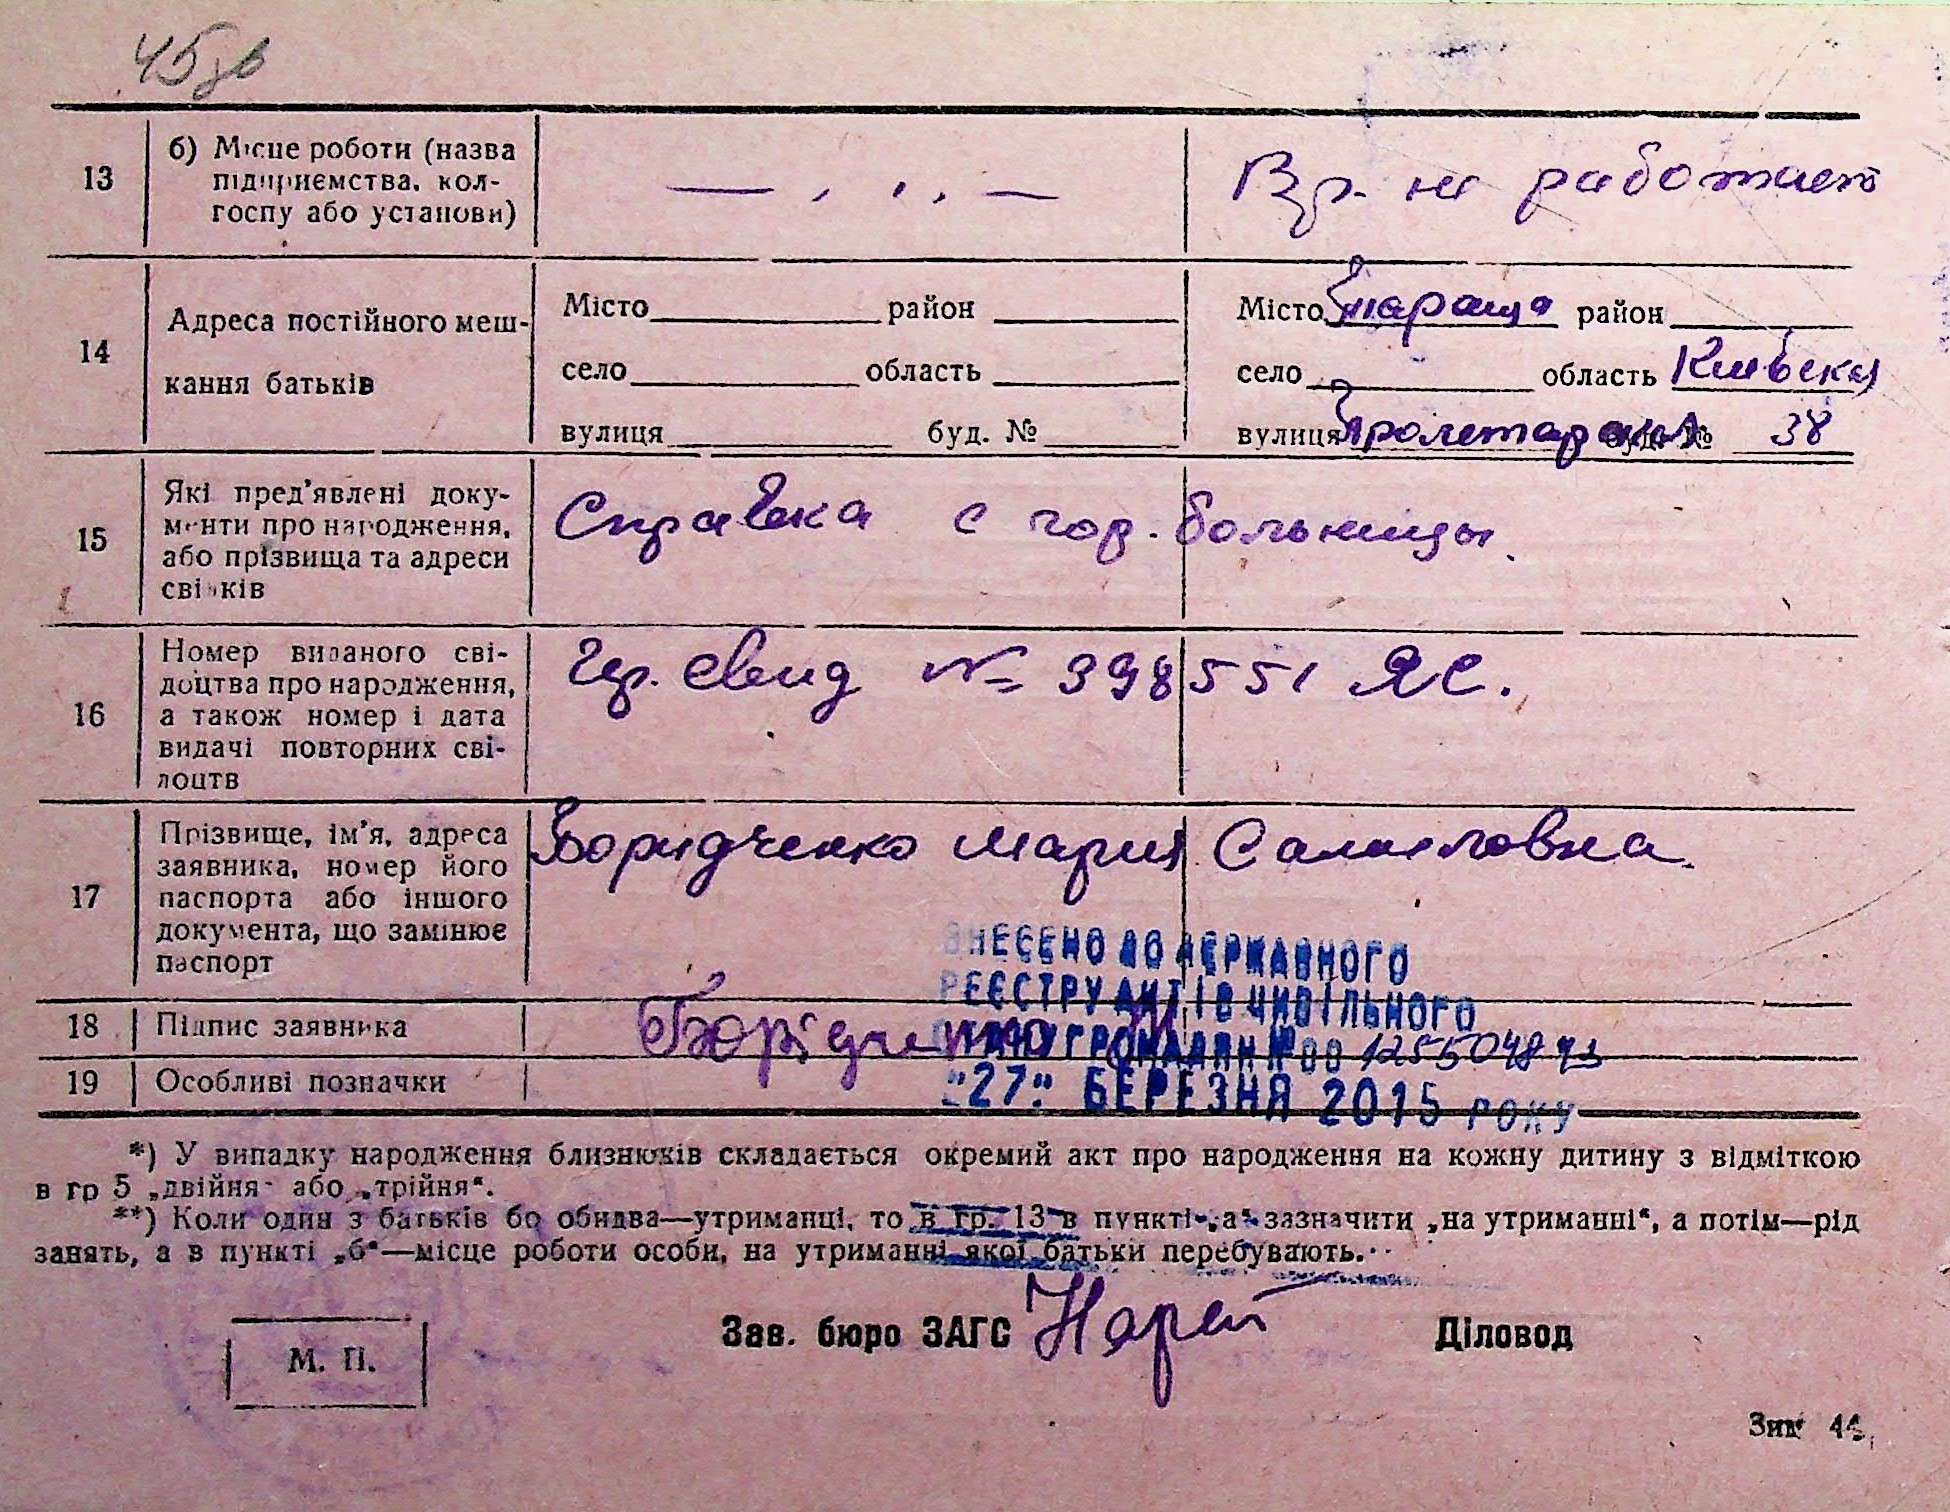 45
13
б) Місце роботи (назва
підприємства, кол-
госпу або установи)
— , , , —
Вр. не работает
14
Адреса постійного меш-
кання батьків
Місто район
село область
вулиця буд. №
Місто Тараща район
село область Киевская
вулиця Пролетарская буд. № 38
15
Які пред'явлені доку-
менти про народження,
або прізвища та адреси
свідків
Справка с гор. больницы.
16
Номер виданого сві-
доцтва про народження,
а також номер і дата
видачі повторних сві-
доцтв
Гр. свид № 398551 ЯС.
17
Прізвище, ім'я, адреса
заявника, номер його
паспорта або іншого
документа, що замінює
паспорт
Боридченко Мария Самиловна
ВНЕСЕНО ДО ДЕРЖАВНОГО
РЕЄСТРУ АКТІВ ЦИВІЛЬНОГО
СТАНУ ГРОМАДЯН № 00125504893
"27" БЕРЕЗНЯ 2015 РОКУ
18
Підпис заявника
Борідченко М
19
Особливі позначки
*) У випадку народження близнюків складається окремий акт про народження на кожну дитину з відміткою
в гр 5 „двійня" або „трійня".
**) Коли один з батьків бо обидва—утриманці, то в гр. 13 в пункті „а" зазначити „на утриманні", а потім—рід
занять, а в пункті „б"—місце роботи особи, на утриманні якої батьки перебувають.
Зав. бюро ЗАГС
Діловод
М. П.